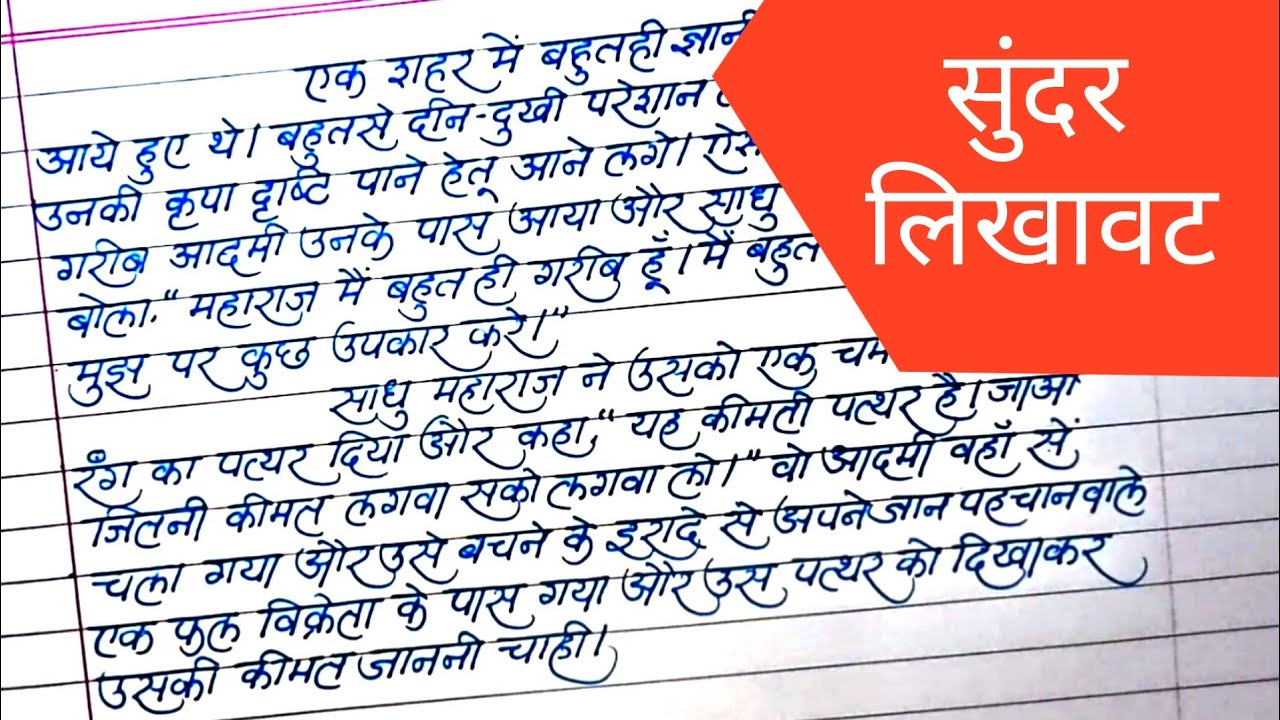 एक शहर में बहुतही ज्ञानी
आये हुए थे। बहुतसे दीन-दुखी परेशान
उनकी कृपा दृष्टि पाने हेतू आने लगे।
गरीब आदमी उनके पास आया और साधु
बोला. "महाराज मैं बहुत ही गरीब हूँ। मैं बहुत
मुझ पर कुछ उपकार करे।"
साधु महाराज ने उसको एक
रंग का पत्थर दिया और कहा, "यह कीमती पत्थर है। जाओ
जितनी कीमत लगवा सको लगवा लो।" वो आदमी वहाँ सें
चला गया और उसे बचने के इरादे से अपने जान पहचान वाले
एक फुल विक्रेता के पास गया और उस पत्थर को दिखाकर
उसकी कीमत जाननी चाही।
सुंदर
लिखावट